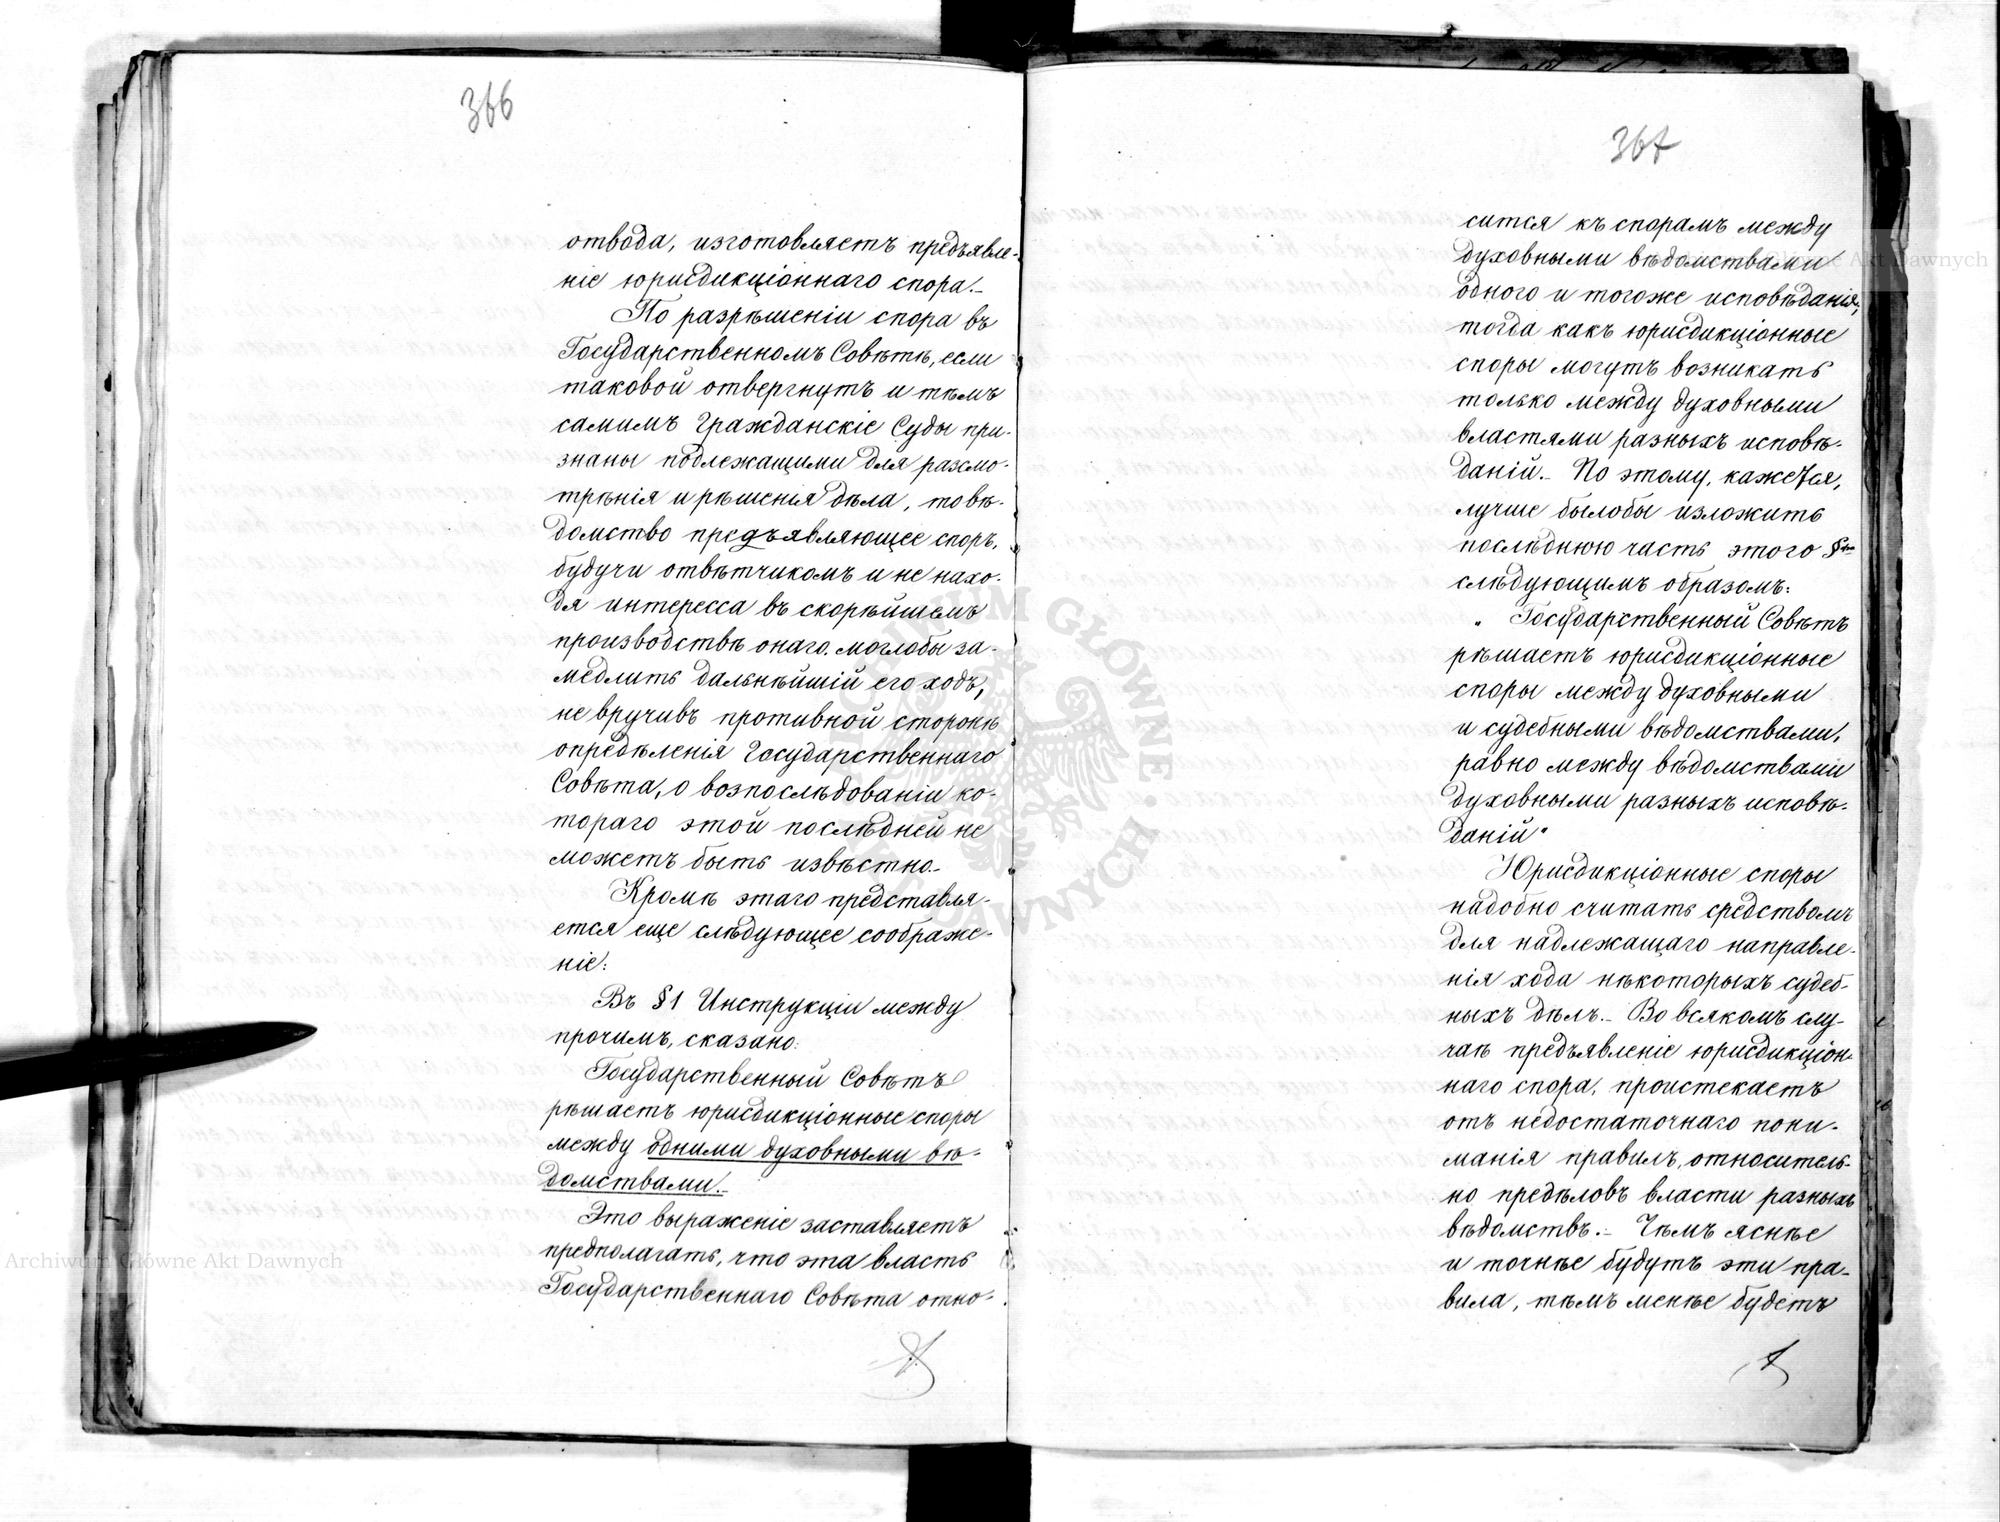 366
отвода, изготовляетъ предъявле-
ніе юрисдикціоннаго спора.-
По разрѣшеніи спора въ
Государственномъ Совѣтѣ, если
таковой отвергнутъ и тѣмъ
самимъ Гражданскіе Суды при-
знаны подлежащими для разсмо-
трѣнія и рѣшенія дѣла, то вѣ-
домство предъявляющее споръ,
будучи отвѣтчикомъ и не нахо-
дя интересса въ скорѣйшемъ
производствѣ онаго, моглобы за-
медлить дальнѣйшій его ходъ,
не вручивъ противной сторонѣ
опредѣленія Государственнаго
Совѣта, о возпослѣдованіи ко-
тораго этой послѣдней не
можетъ быть извѣстно.-
Кромѣ этаго представля-
ется еще слѣдующее соображе-
ніе:
Въ §1 Инструкціи между
прочимъ, сказано:
Государственный Совѣтъ
рѣшаетъ юрисдикціонные споры
между одними духовными вѣ-
домствами.-
Это выраженіе заставляетъ
предполагать, что эта власть
Государственнаго Совѣта отно-
367
сится къ спорамъ между
духовными вѣдомствами
одного и тогоже исповѣданія,
тогда какъ юрисдикціонные
споры могутъ возникать
только между духовными
властями разныхъ исповѣ-
даній.- По этому, кажется,
лучше былобы изложить
послѣднюю часть этого §фа
слѣдующимъ образомъ:
„Государственный Совѣтъ
рѣшаетъ юрисдикціонные
споры между духовными
и судебными вѣдомствами,
равно между вѣдомствами
духовными разныхъ исповѣ-
даній"
Юрисдикціонные споры
надобно считать средствомъ
для надлежащаго направле-
нія хода нѣкоторыхъ судеб-
ныхъ дѣлъ.- Во всякомъ слу-
чаѣ предъявленіе юрисдикціон-
наго спора, проистекаетъ
отъ недостаточнаго пони-
манія правилъ, относитель-
но предѣловъ власти разныхъ
вѣдомствъ.- Чѣмъ яснѣе
и точнѣе будутъ эти пра-
вила, тѣмъ менѣе будетъ
Archiwum Główne Akt Dawnych
ARCHIWUM GŁÓWNE AKT DAWNYCH
Archiwum Główne Akt Dawnych